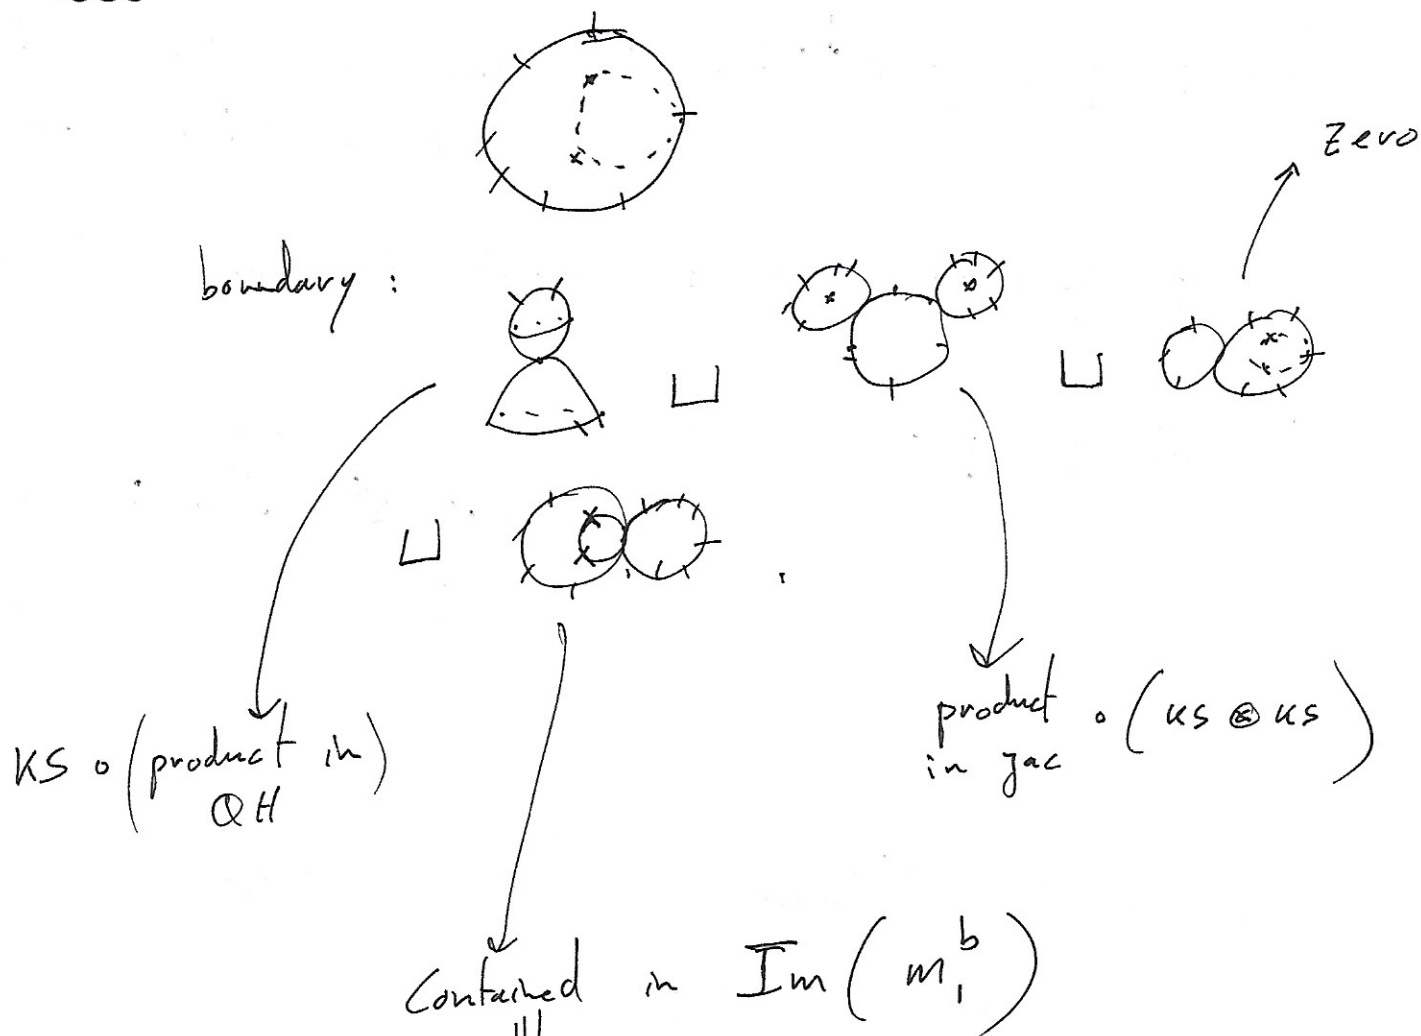 Zero
boundary :
⊔ ⊔
⊔ .
KS ∘ (product in QH)
product in Jac ∘ (KS ⊗ KS)
Contained in Im (m₁ᵇ)